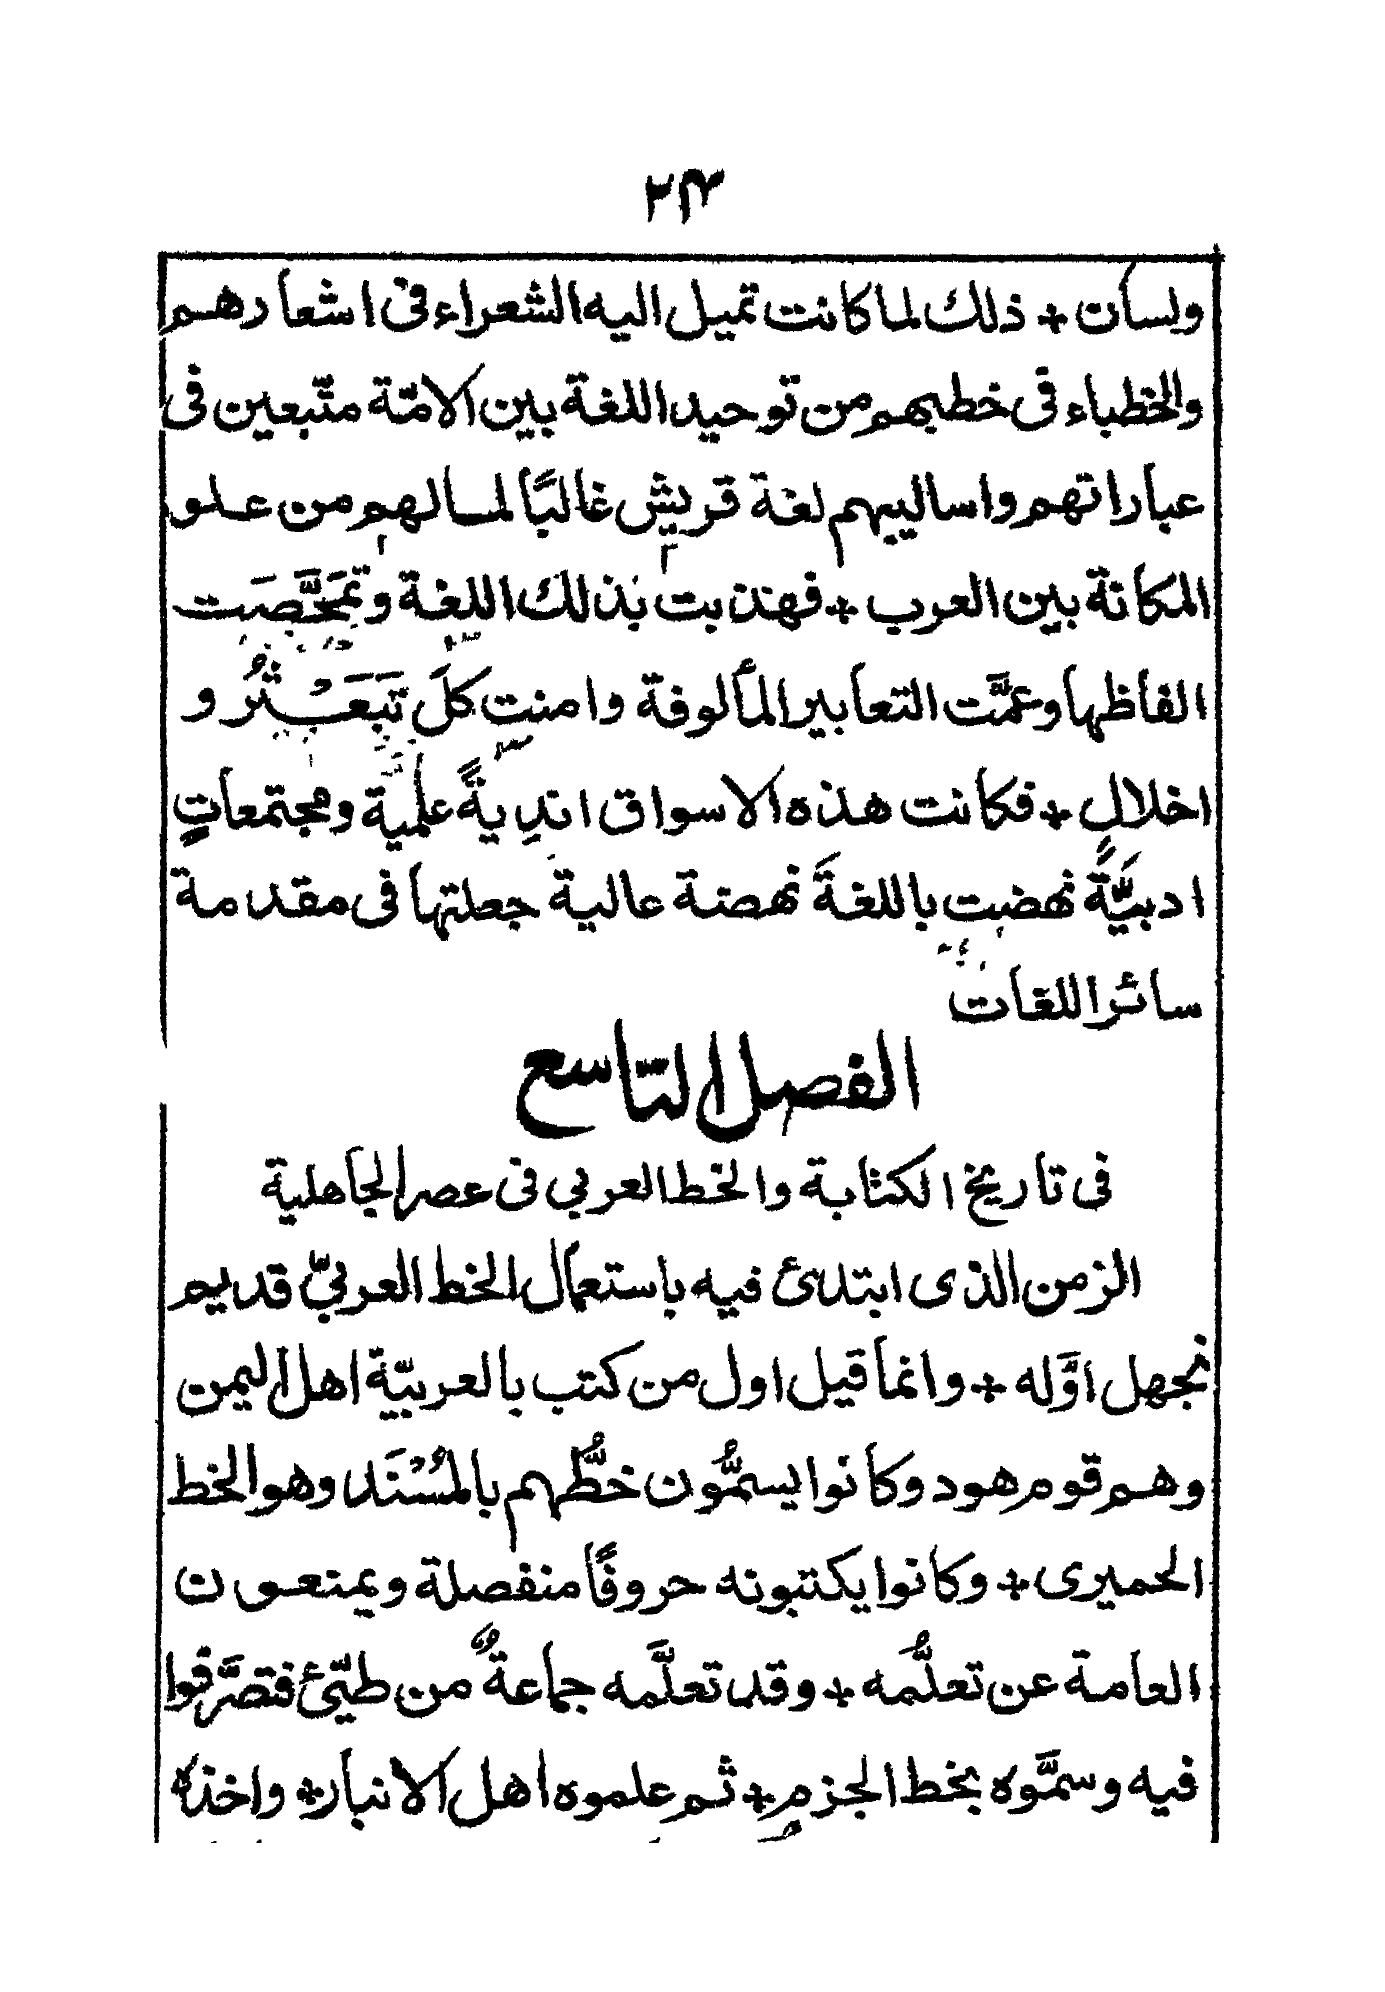 ٢٤
ولسان + ذلك لما كانت تميل اليه الشعراء فى اشعارهم
والخطباء فى خطبهم من توحيد اللغة بين الامّة متّبعين فى
عباراتهم واساليبهم لغة قريش غالبًا لما لهم من علو
المكانة بين العرب + فهذبت بذلك اللغة وتمخَّصَت
الفاظها وعمَّت التعابير المألوفة وامنت كلَ تَبَعْثُر و
اخلال + فكانت هذه الاسواق اندِيةً علمية ومجتمعاتٍ
ادبيَّةً نهضت باللغةَ نهضة عالية جعلتها فى مقدمة
سائر اللغات
الفصل التّاسع
فى تاريخ الكتابة والخط العربي فى عصر الجاهلية
الزمن الذى ابتدئ فيه باستعمال الخط العربيّ قديم
نجهل اوَّله + وانما قيل اول من كتب بالعربيّة اهل اليمن
وهم قوم هود وكانوا يسمُّون خطُّهم بالمُسْنَد وهو الخط
الحميرى + وكانوا يكتبونه حروفًا منفصلة ويمنعون
العامة عن تعلُّمه + وقد تعلَّمه جماعةٌ من طيّئ فتصرَّفوا
فيه وسمَّوه بخط الجزم + ثم علموه اهل الانبار + واخذه